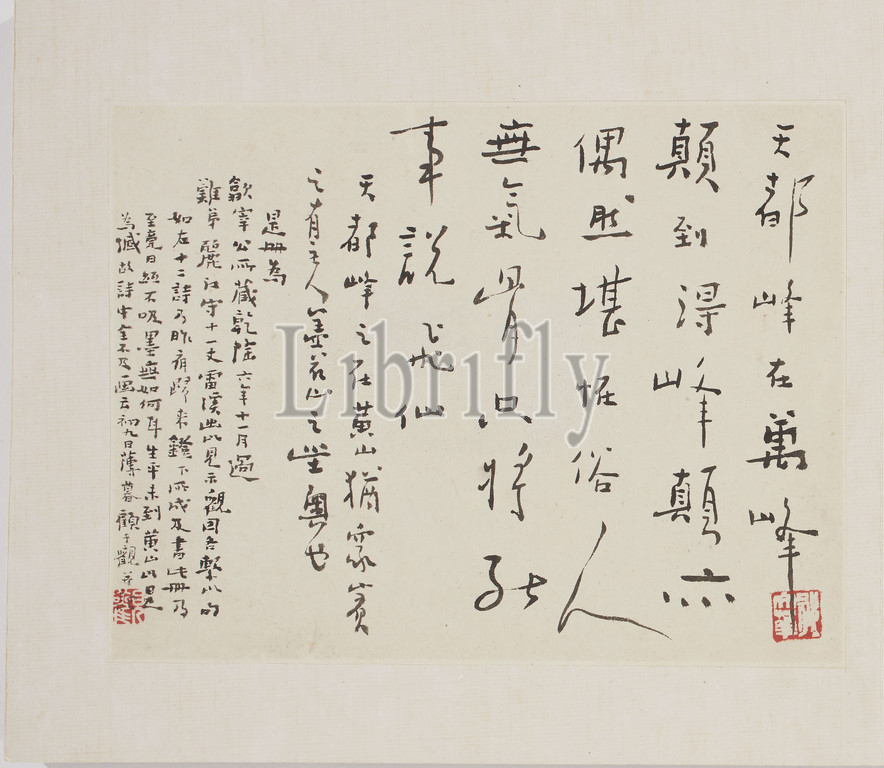 天都峰在萬峰
顛到得峰顛亦
偶然堪恠俗人
無氣骨只將
事說飛仙
天都峰之在黃山猶家賓
之有主人蓋衆山之堂奧也
是冊為
歙宰公所藏乾隆六年十一月過
難弟麗江守十一丈雷溪出以見示觀因各繫以詩
如左十二詩乃昨宵歸來鐙下所成及書此冊乃
至竟日紙不吸墨無如何耳生平未到黃山以是
為憾故詩中全不及畫云初九日薄暮顧于觀并
Librifly